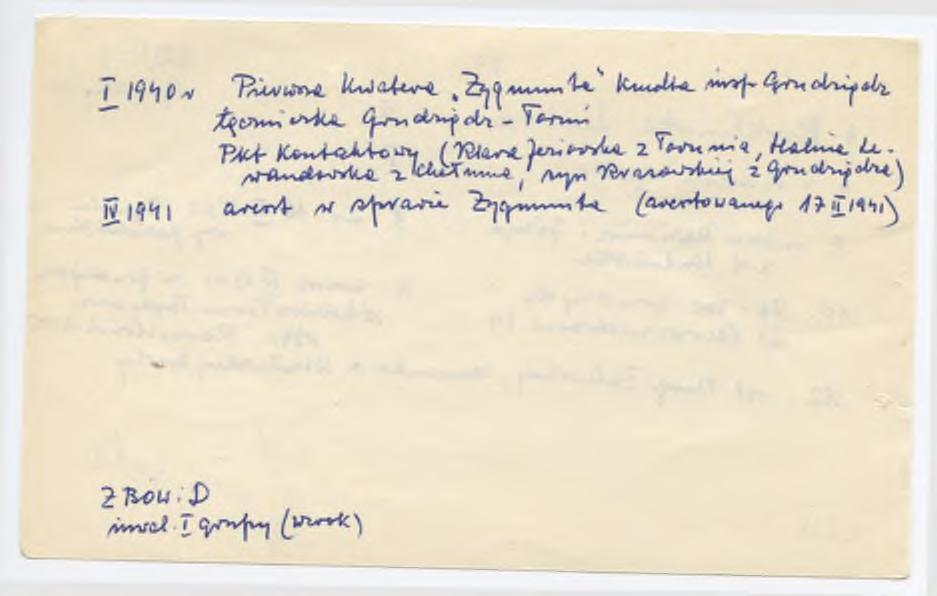 I 1940 r Pierwsza Kwatera „Zygmunta" Kmdta insp Grudziądz
Łączniczka Grudziądz - Toruń
Pkt Kontaktowy (Klara Jeziorska z Torunia, Halina Le-
wandowska z Chełmna, syn Krasowskiej z Grudziądza)
IV 1941 areszt w sprawie Zygmunta (aresztowanego 17 II 1941)
ZBOWiD
inwal. I grupy (wzrok)